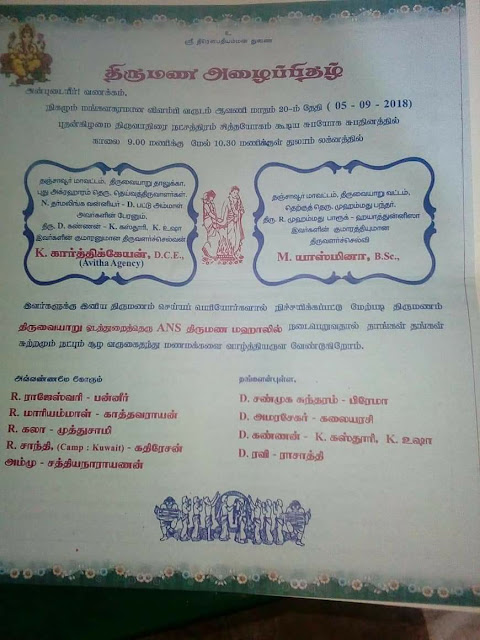 உ
ஸ்ரீ திரௌபதியம்மன் துணை
திருமண அழைப்பிதழ்
அன்புடையீர் வணக்கம்,
நிகழும் மங்களகரமான விளம்பி வருடம் ஆவணி மாதம் 20-ம் தேதி ( 05 - 09 - 2018)
புதன்கிழமை திருவாதிரை நட்சத்திரம் சித்தயோகம் கூடிய சுபயோக சுபதினத்தில்
காலை 9.00 மணிக்கு மேல் 10.30 மணிக்குள் துலாம் லக்னத்தில்
தஞ்சாவூர் மாவட்டம், திருவையாறு தாலுக்கா,
புது அக்ரஹாரம் தெரு, தெய்வத்திருவாளர்கள்.
N. தர்மலிங்க வன்னியர் - D. பட்டு அம்மாள்
அவர்களின் பேரனும்,
திரு. D. கண்ணன் - K. கஸ்தூரி, K. உஷா
இவர்களின் குமாரனுமான திருவளர்செல்வன்
K. கார்த்திக்கேயன், D.C.E.,
(Avitha Agency)
தஞ்சாவூர் மாவட்டம், திருவையாறு வட்டம்,
தெற்குத் தெரு, முஹம்மது பந்தர்,
திரு. R. முஹம்மது பாரூக் - ஹயாத்துன்னிஸா
இவர்களின் குமாரத்தியுமான
திருவளர்செல்வி
M. யாஸ்மினா, B.Sc.,
இவர்களுக்கு இனிய திருமணம் செய்யப் பெரியோர்களால் நிச்சயிக்கப்பட்டு மேற்படி திருமணம்
திருவையாறு ஓடத்துறைத்தெரு ANS திருமண மஹாலில் நடைபெறுவதால் தாங்கள் தங்கள்
சுற்றமும் நட்பும் சூழ வருகைதந்து மணமக்களை வாழ்த்தியருள வேண்டுகிறோம்.
அவ்வண்ணமே கோரும்
R. ராஜேஸ்வரி - பன்னீர்
R. மாரியம்மாள் - காத்தவராயன்
R. கலா - முத்துசாமி
R. சாந்தி, (Camp : Kuwait) - கதிரேசன்
அம்மு - சத்தியநாராயணன்
தங்களன்புள்ள,
D. சண்முக சுந்தரம் - பிரேமா
D. அமரசேகர் - கலையரசி
D. கண்ணன் - K. கஸ்தூரி, K. உஷா
D. ரவி - ராசாத்தி